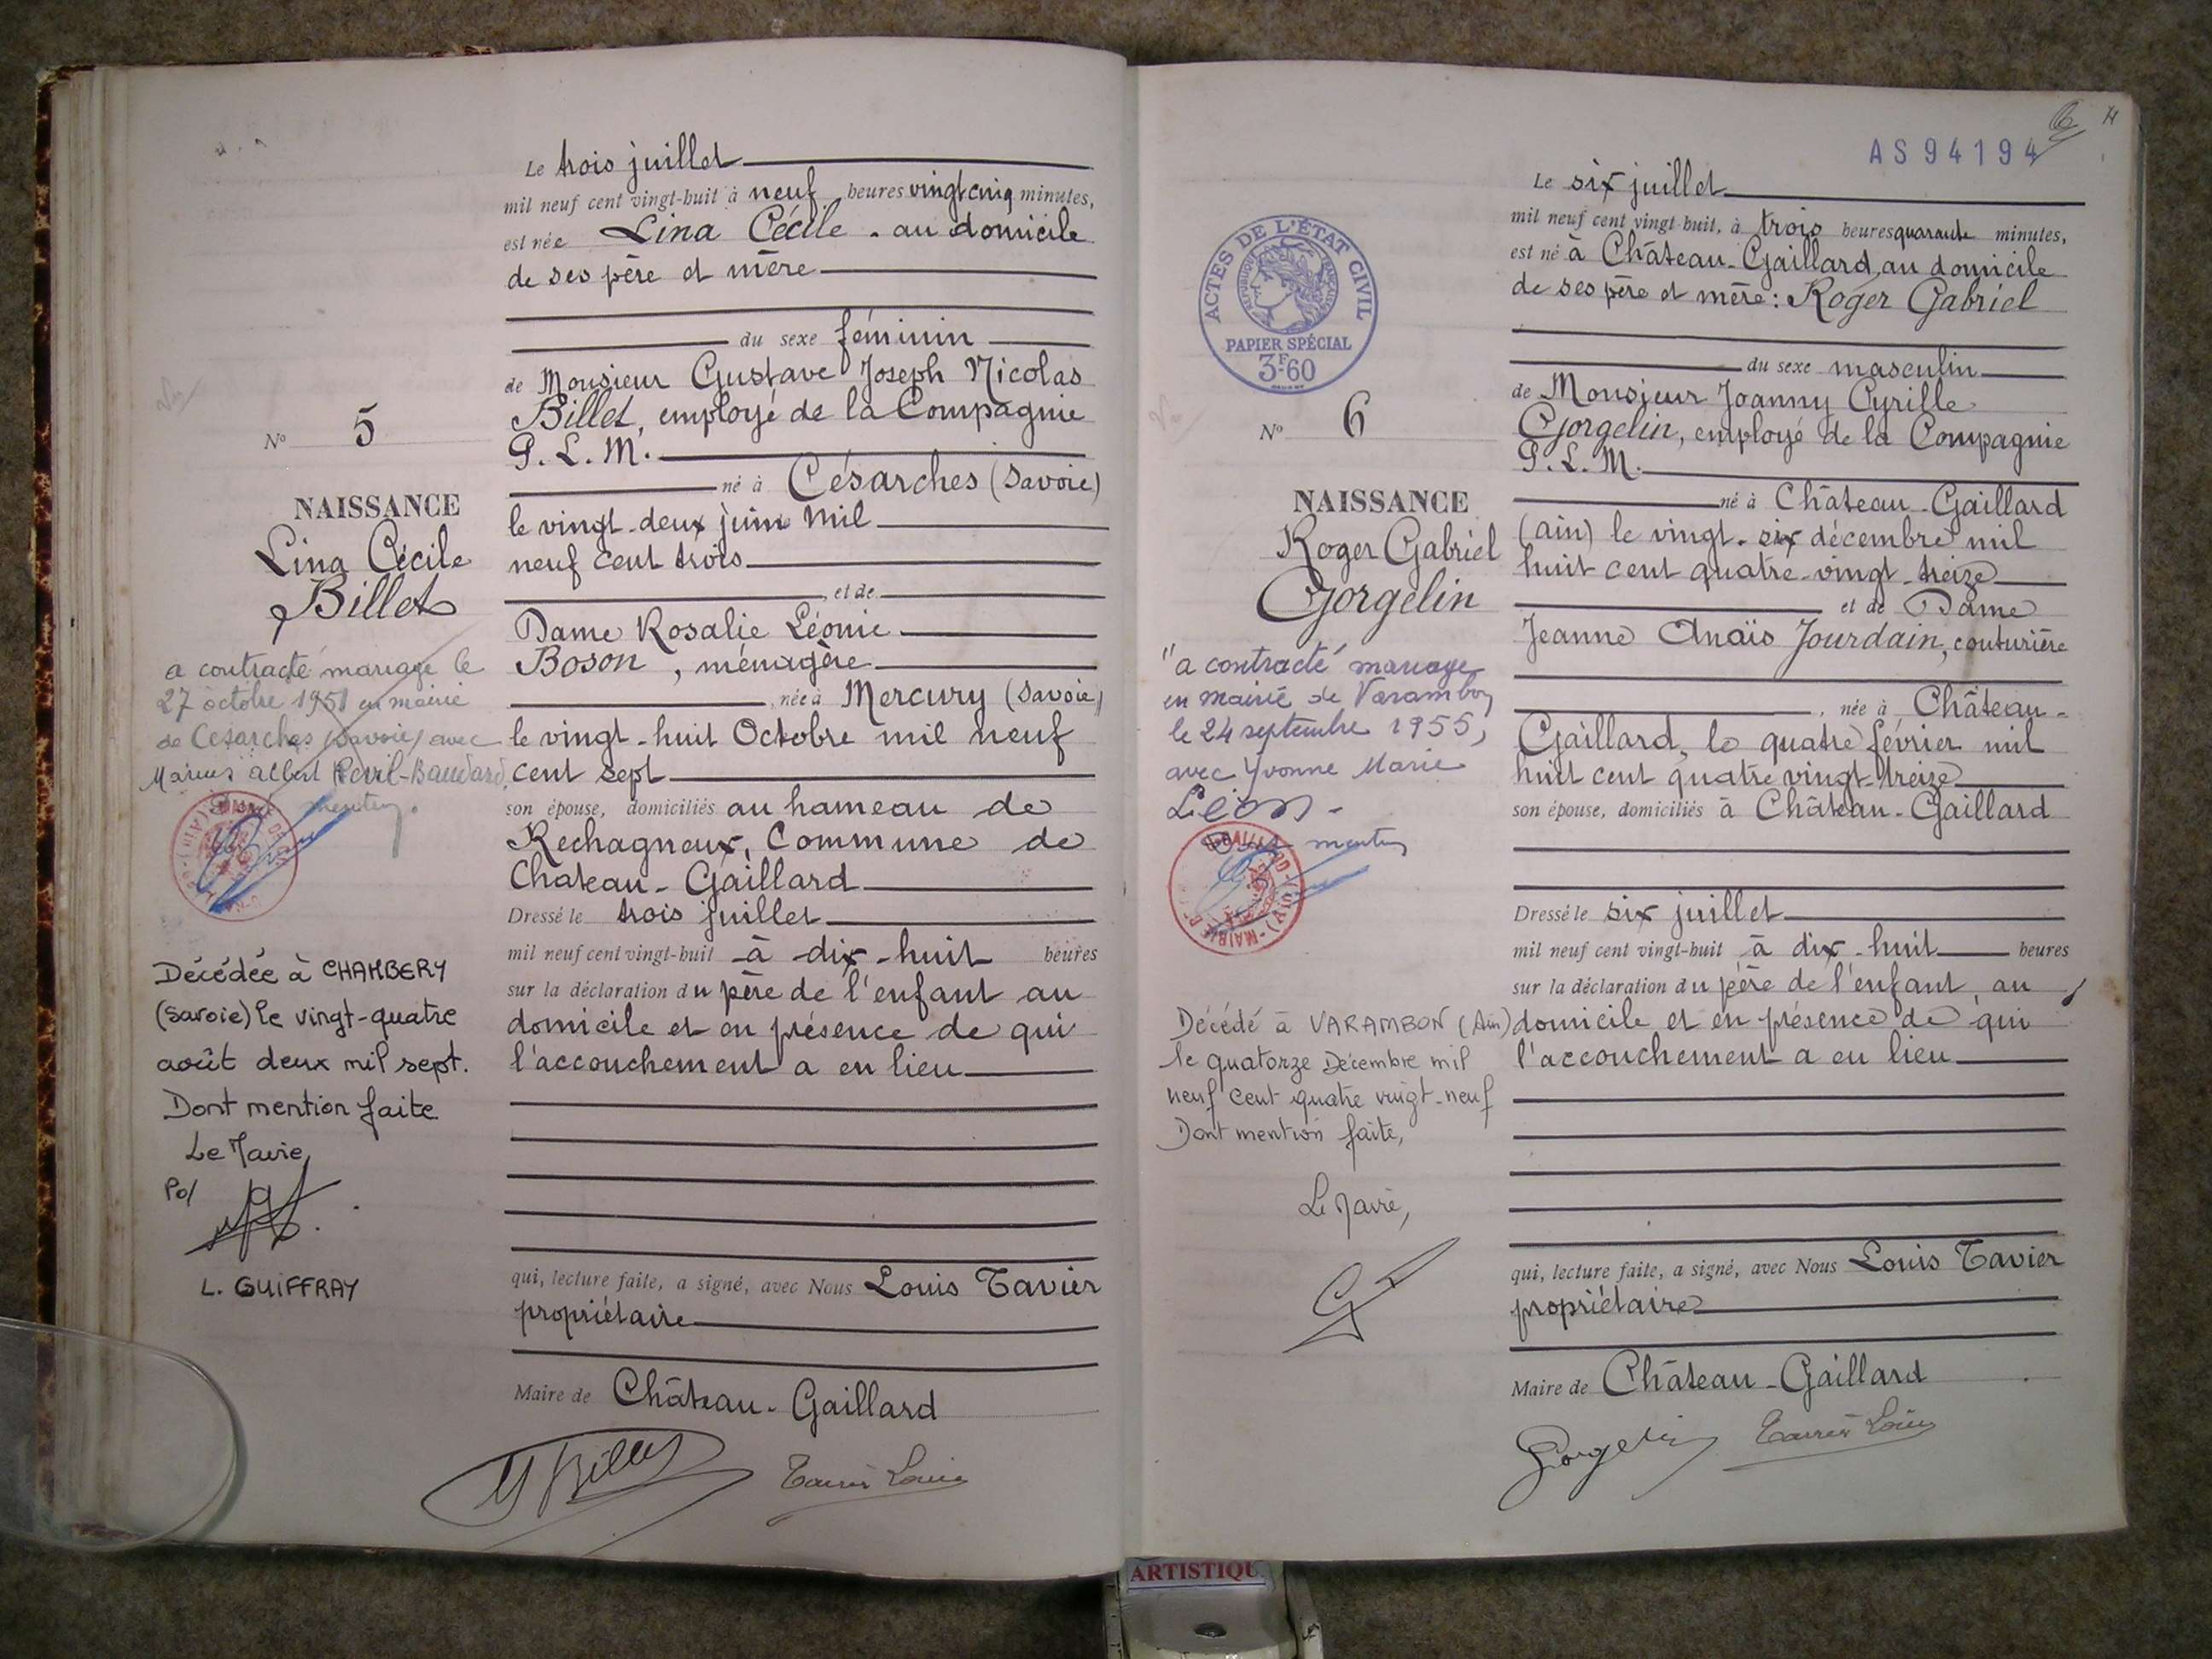 Le trois juillet
mil neuf cent vingt-huit à neuf heures vingt cinq minutes,
est née Lina Cécile - au domicile
de ses père et mère
du sexe féminin
de Monsieur Gustave Joseph Nicolas
Billet, employé de la Compagnie
P. L. M.
né à Césarches (Savoie)
le vingt-deux juin mil
neuf cent trois
, et de
Dame Rosalie Léonie
Boson, ménagère
, née à Mercury (Savoie)
le vingt-huit Octobre mil neuf
cent sept
son épouse, domiciliés au hameau de
Rechagneux, Commune de
Chateau-Gaillard
Dressé le trois juillet
mil neuf cent vingt-huit à dix-huit heures
sur la déclaration du père de l'enfant au
domicile et en présence de qui
l'accouchement a eu lieu
qui, lecture faite, a signé, avec Nous Louis Tavier
propriétaire
Maire de Château-Gaillard
G Billet Tavier Louis
N° 5
NAISSANCE
Lina Cécile
Billet
a contracté mariage le
27 octobre 1951 en mairie
de Césarches (Savoie) avec
Marius Albert
mention.
Décédée à CHAMBERY
(Savoie) le vingt-quatre
août deux mil sept.
Dont mention faite
Le Maire,
Po/
L. GUIFFRAY
AS 94194
Le six juillet
mil neuf cent vingt-huit, à trois heures quarante minutes,
est né à Château-Gaillard, au domicile
de ses père et mère : Roger Gabriel
du sexe masculin
de Monsieur Joanny Cyrille
Gorgelin, employé de la Compagnie
P. L. M.
né à Château-Gaillard
(ain) le vingt-six décembre mil
huit cent quatre-vingt-treize
et de Dame
Jeanne Anaïs Jourdain, couturière
, née à Château-
Gaillard, le quatre février mil
huit cent quatre vingt-treize
son épouse, domiciliés à Château-Gaillard
Dressé le six juillet
mil neuf cent vingt-huit à dix-huit heures
sur la déclaration du père de l'enfant, au
domicile et en présence de qui
l'accouchement a eu lieu
qui, lecture faite, a signé, avec Nous Louis Tavier
propriétaire
Maire de Château-Gaillard
Gorgelin Tavier Louis
ACTES DE L'ÉTAT CIVIL
RÉPUBLIQUE FRANÇAISE
PAPIER SPÉCIAL
3F.60
N° 6
NAISSANCE
Roger Gabriel
Gorgelin
"a contracté mariage
en mairie de Varambon
le 24 septembre 1955,
avec Yvonne Marie
Léon -
mention
Décédé à VARAMBON (Ain)
le quatorze Décembre mil
neuf cent quatre vingt-neuf
Dont mention faite,
Le Maire,
ARTISTIQU